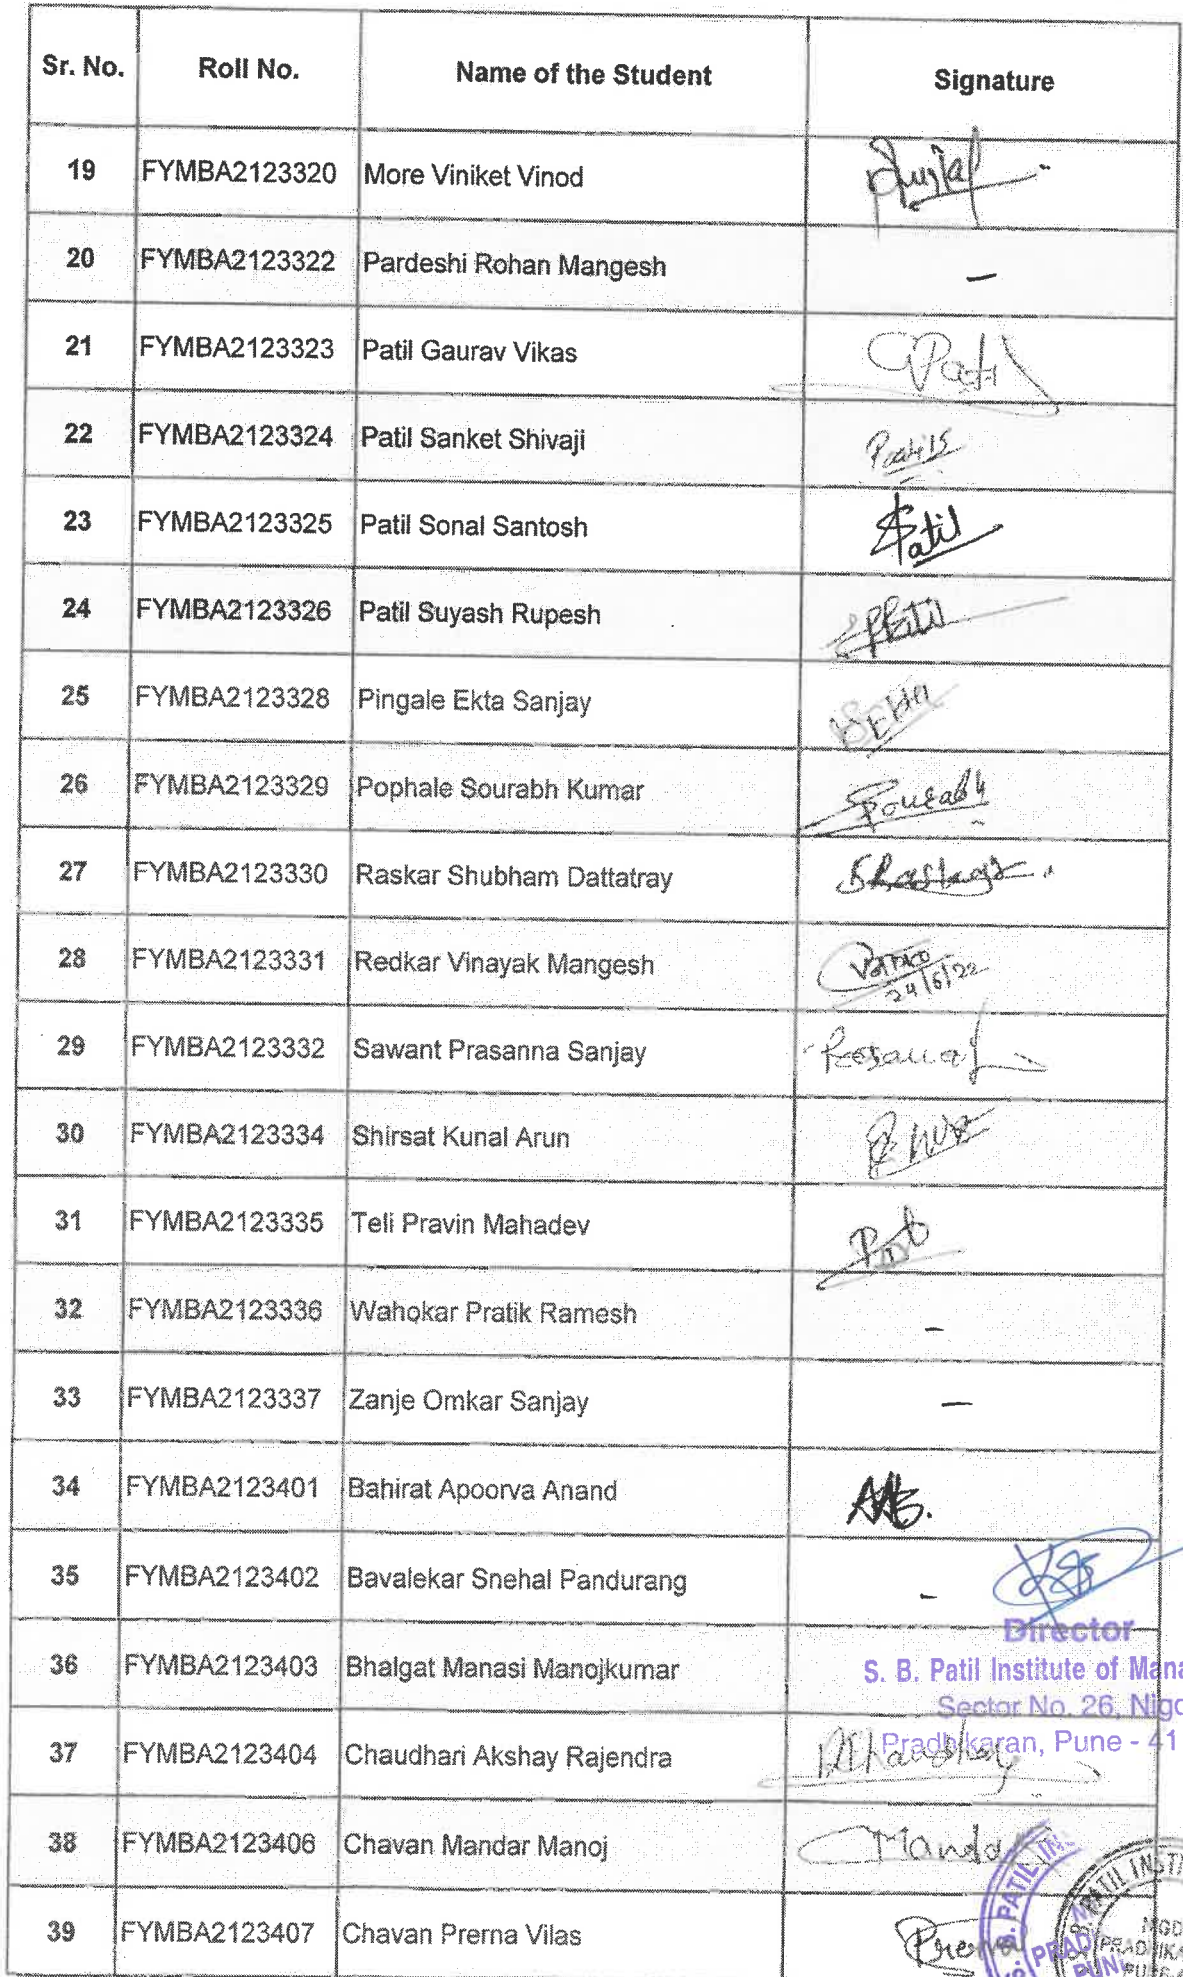 Sr. No. Roll No. Name of the Student Signature
19 FYMBA2123320 More Viniket Vinod
20 FYMBA2123322 Pardeshi Rohan Mangesh –
21 FYMBA2123323 Patil Gaurav Vikas GPatil
22 FYMBA2123324 Patil Sanket Shivaji
23 FYMBA2123325 Patil Sonal Santosh SPatil
24 FYMBA2123326 Patil Suyash Rupesh
25 FYMBA2123328 Pingale Ekta Sanjay
26 FYMBA2123329 Pophale Sourabh Kumar Sourabh
27 FYMBA2123330 Raskar Shubham Dattatray
28 FYMBA2123331 Redkar Vinayak Mangesh 24/6/22
29 FYMBA2123332 Sawant Prasanna Sanjay
30 FYMBA2123334 Shirsat Kunal Arun
31 FYMBA2123335 Teli Pravin Mahadev
32 FYMBA2123336 Wahokar Pratik Ramesh –
33 FYMBA2123337 Zanje Omkar Sanjay –
34 FYMBA2123401 Bahirat Apoorva Anand
35 FYMBA2123402 Bavalekar Snehal Pandurang -
Director
36 FYMBA2123403 Bhalgat Manasi Manojkumar S. B. Patil Institute of Mana
Sector No. 26, Nigd
Pradhikaran, Pune - 41
37 FYMBA2123404 Chaudhari Akshay Rajendra
38 FYMBA2123406 Chavan Mandar Manoj Manda
39 FYMBA2123407 Chavan Prerna Vilas Prerna